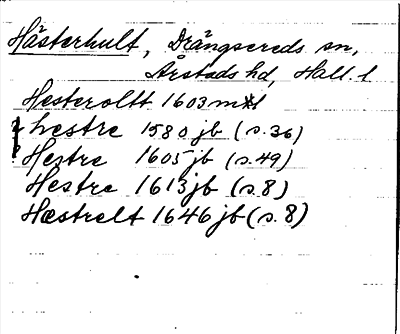 Hästerhult, Drängsereds sn,
Årstads hd, Hall. l
Hesteroltt 1603 mtl
hestre 1580 jb (s. 36)
Hestre 1605 jb (s. 49)
Hestre 1613 jb (s. 8)
Hæstrelt 1646 jb (s. 8)